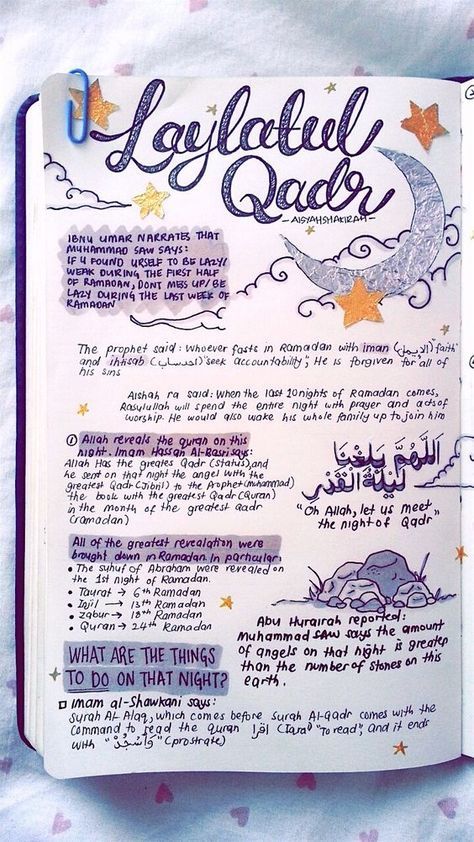 Laylatul
Qadr
-AISYAHSHAKIRAH-
IBNU UMAR NARRATES THAT
MUHAMMAD SAW SAYS:
IF U FOUND URSELF TO BE LAZY/
WEAK DURING THE FIRST HALF
OF RAMADAN, DONT MESS UP/BE
LAZY DURING THE LAST WEEK OF
RAMADAN
The prophet said: whoever fasts in Ramadan with iman (الإيمل) "faith"
and ihtisab (احتساب) "seek accountability", He is forgiven for all of
his sins
Aishah ra said: When the last 10 nights of Ramadan comes,
Rasulullah will spend the entire night with prayer and acts of
worship. He would also wake his whole family up to join him
① Allah reveals the quran on this
night. Imam Hassan Al-Basri says:
Allah Has the greates Qadr (status), and
he sent on that night the angel with the
greatest Qadr (Jibril) to the Prophet (muhammad)
the book with the greatest Qadr (Quran)
in the month of the greatest qadr
(ramadan)
اللهم بلغنا
ليلة القدر
"Oh Allah, let us meet
the night of Qadr"
All of the greatest revealation were
brought down in Ramadan. In particular:
• The suhuf of Abraham were revealed on
the 1st night of Ramadan.
• Taurat → 6th Ramadan
• Injil → 13th Ramadan
• Zabur → 18th Ramadan
• Quran → 24th Ramadan
Abu Hurairah reported:
Muhammad saw says the amount
of angels on that night is greater
than the number of stones on this
earth.
WHAT ARE THE THINGS
TO DO ON THAT NIGHT?
Imam al-Shawkani says:
Surah Al Alaq, which comes before Surah Al-qadr comes with the
command to read the quran اقرا (Iqra) "To read", and it ends
with "وَاسْجُدْ" (prostrate)